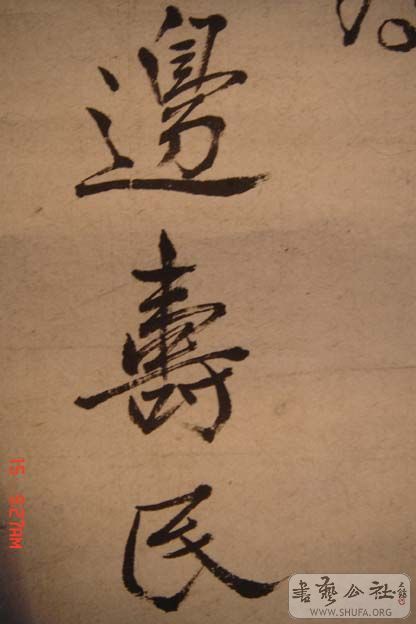 邊壽民
15 5:27AM
書藝公社
WWW.SHUFA.ORG